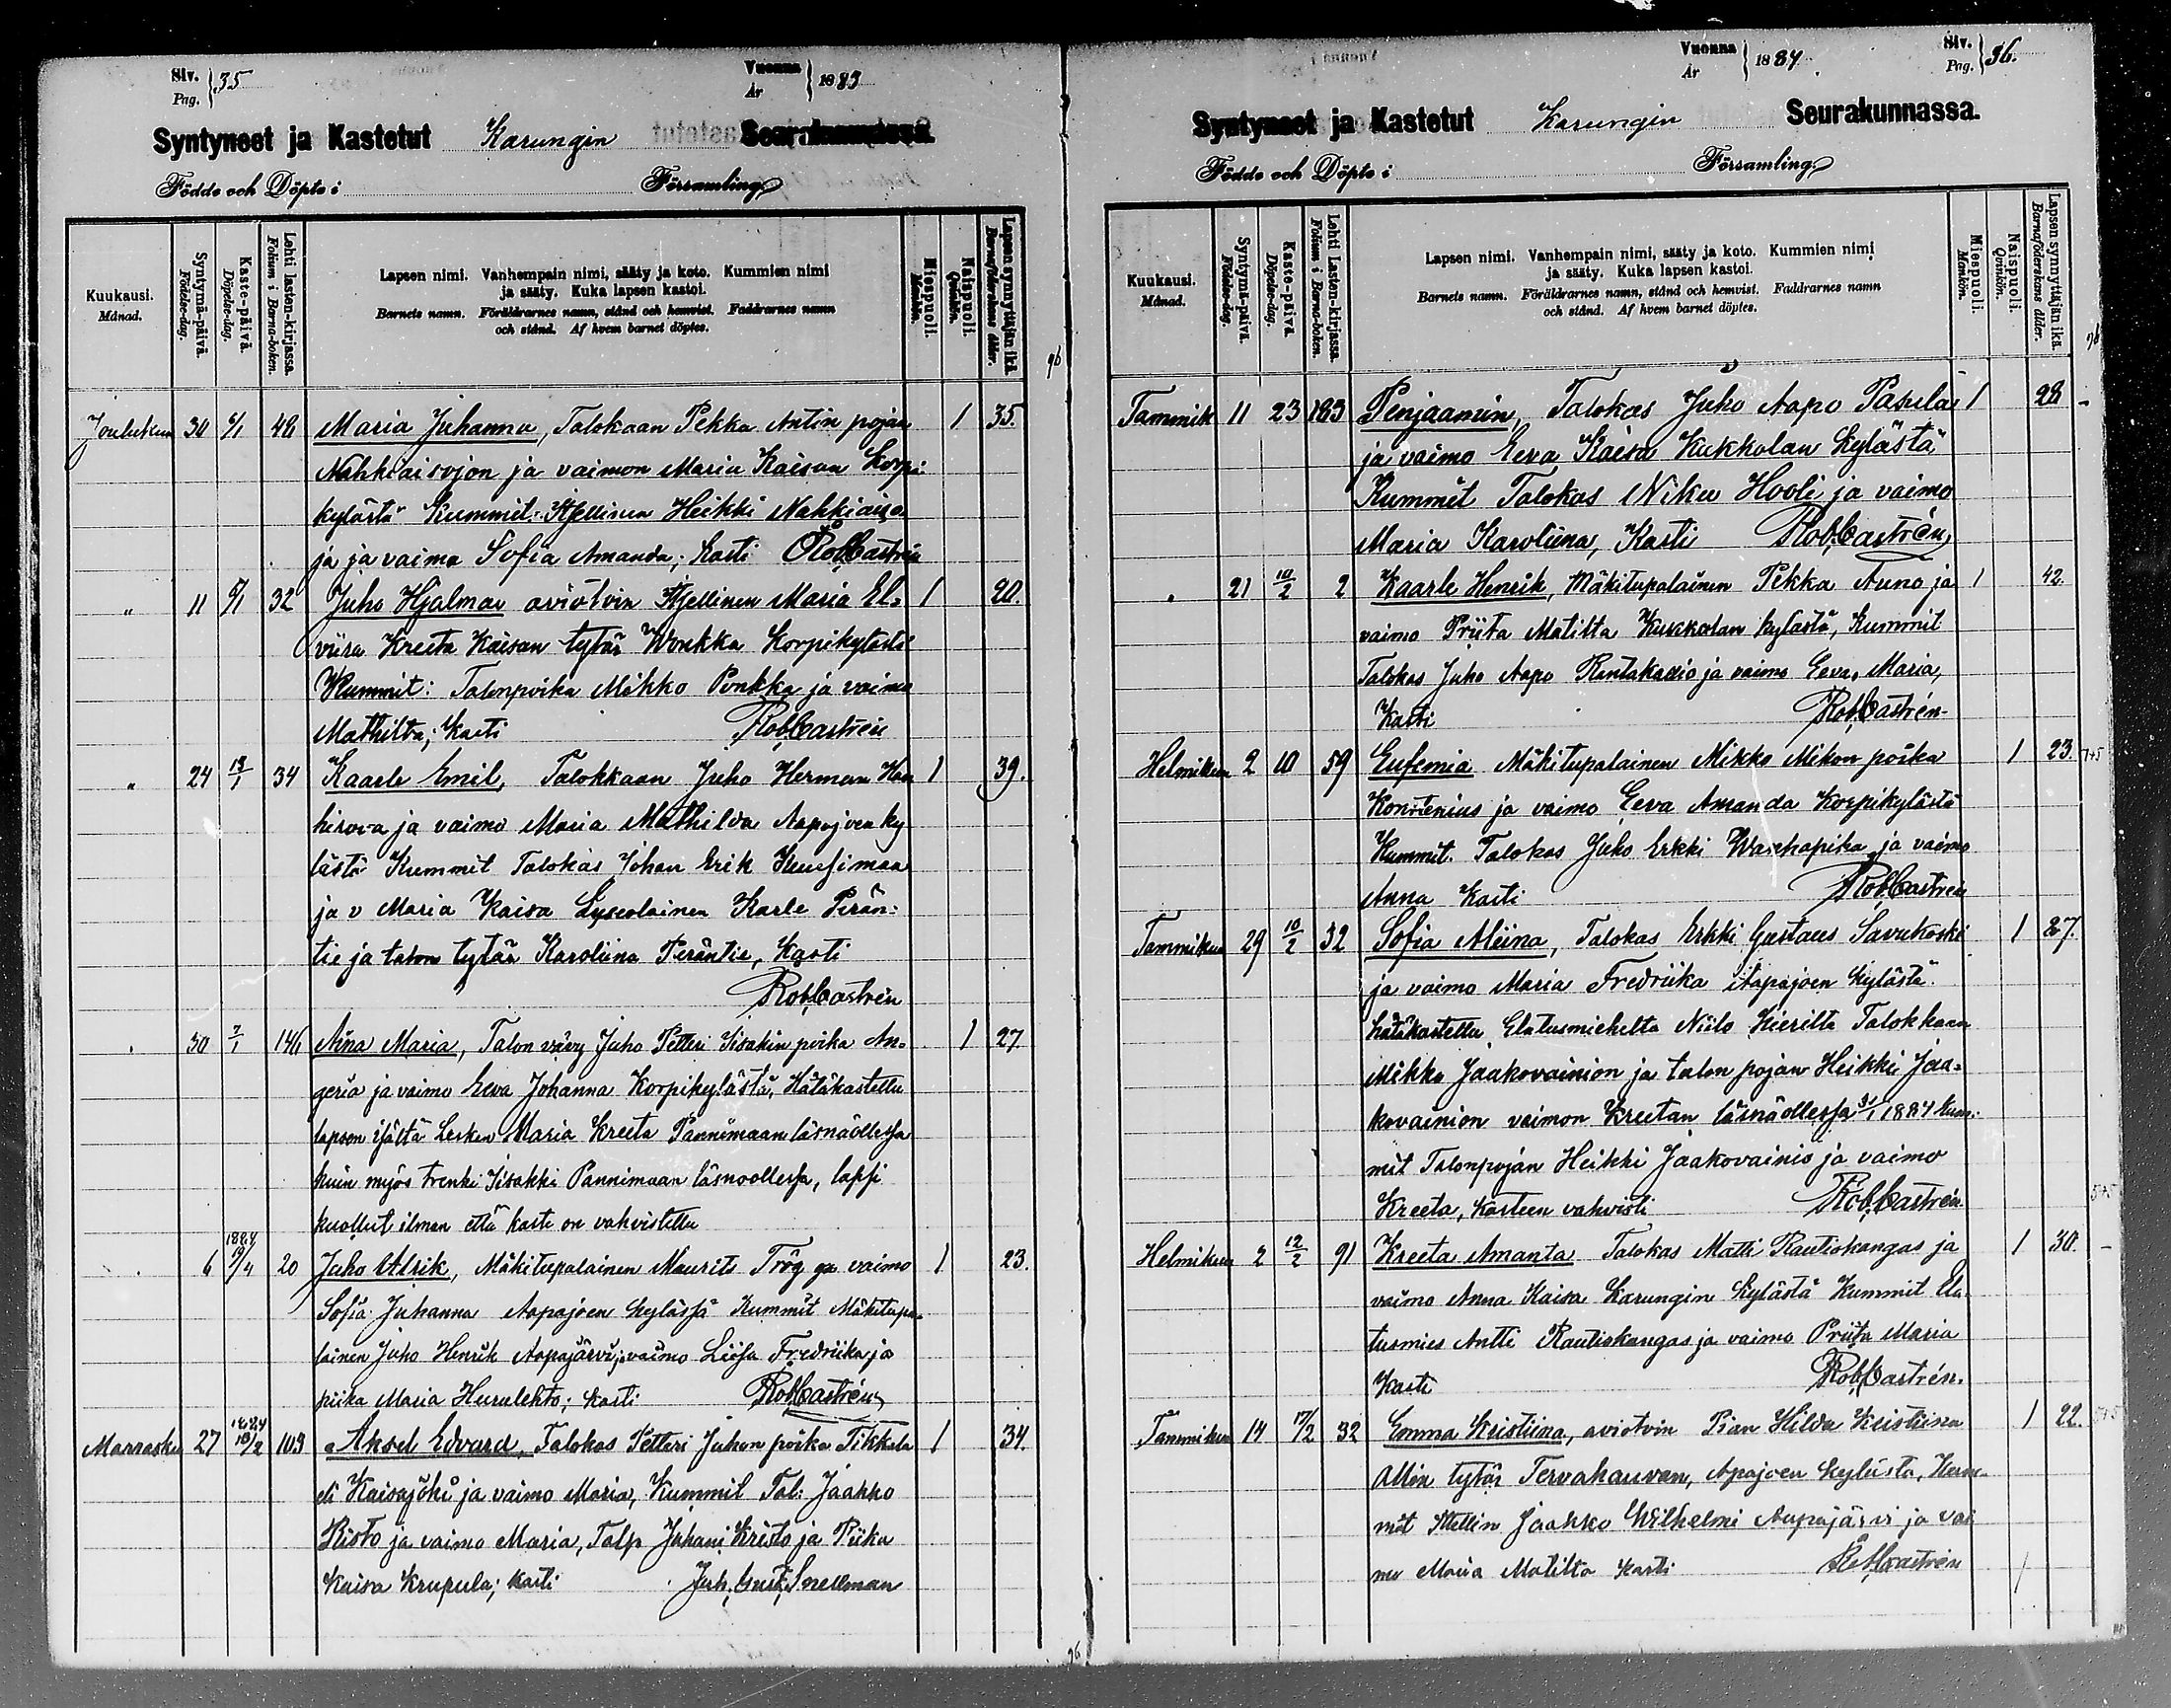 Siv. Pag. } 35
Vuonna År } 1883
Syntyneet ja Kastetut Karungin Seurakunnassa.
Födde och Döpte i Församling
Kuukausi. Månad.
Syntymä-päivä. Födelse-dag.
Kaste-päivä. Döpelse-dag.
Lehti lasten-kirjassa. Folium i Barna-boken.
Lapsen nimi. Vanhempain nimi, sääty ja koto. Kummien nimi
ja sääty. Kuka lapsen kastoi.
Barnets namn. Föräldrarnes namn, stånd och hemvist. Faddrarnes namn
och stånd. Af hvem barnet döptes.
Miespuoli. Mankön.
Naispuoli. Qvinkön.
Lapsen synnyttäjän ikä. Barnaföderskans ålder.
Joulukuu 30 6/1 48 Maria Juhanna, Talokaan Pekka Antin pojan 1 35.
Nahkiaisojon ja vaimon Maria Kaisan Korpi-
kylästä Kummit: Itsellinen Heikki Nahkiaiso-
ja ja vaimo Sofia Amanda; Kasti Rob Castrén
" 11 6/1 32 Juho Hjalmar aviotvin Itsellinen Maria El- 1 20.
viira Kreeta Kaisan tytär Wonkka Korpikylästä
Kummit: Talonpoika Mikko Ponkka ja vaimo
Mathilta; Kasti Rob Castrén
" 24 13/1 34 Kaarle Emil, Talokkaan Juho Herman Kan 1 39.
hirova ja vaimo Maria Mathilda Aapajoen ky
lästä Kummit Talokas Johan Erik Kuusimaa
ja v Maria Kaisa Lyseolainen Karle Perän-
tie ja talon tytär Karoliina Peräntie, Kasti
Rob Castrén
" 30 7/1 146 Aina Maria, Talon vävy Juho Petteri Iisakin poika An- 1 27
geria ja vaimo Eeva Johanna Korpikylästä, Hätäkastettu
lapsen isältä Lesken Maria Kreeta Pannimaan läsnäollessa
kuin myös trenki Iisakki Pannimaan läsnoollessa, lapsi
kuollut ilman että kaste on vahvistettu
" 6 1884 19/4 20 Juho Alrik, Mäkitupalainen Maurits Trög ja vaimo 1 23.
Sofia Juhanna Aapajoen kylässä Kummit Mäkitupa-
lainen Juho Henrik Aapajärvi ja vaimo Liisa Fredriika ja
piika Maria Hurulehto; kasti Rob Castrén
Marrasku 27 1884 10/2 103 Aksel Edvard, Talokas Petteri Juhon poika Tikkala 1 34.
eli Kaisajoki ja vaimo Maria, Kummit Tal: Jaakko
Risto ja vaimo Maria, Talp Juhani Kristo ja Piika
Kaisa Krupula; kasti Juh. Gust. Snellman
Vuonna År } 1884
Siv. Pag. } 36.
Syntyneet ja Kastetut Karungin Seurakunnassa.
Födde och Döpte i Församling
Kuukausi. Månad.
Syntymä-päivä. Födelse-dag.
Kaste-päivä. Döpelse-dag.
Lehti Lasten-kirjassa. Folium i Barna-boken.
Lapsen nimi. Vanhempain nimi, sääty ja koto. Kummien nimi
ja sääty. Kuka lapsen kastoi.
Barnets namn. Föräldrarnes namn, stånd och hemvist. Faddrarnes namn
och stånd. Af hvem barnet döptes.
Miespuoli. Mankön.
Naispuoli. Qvinkön.
Lapsen synnyttäjän ikä. Barnaföderskans ålder.
Tammik 11 23 183 Penjaamin, Talokas Juho Aapo Pasula 1 28
ja vaimo Eeva Kaisa Kukkolan kylästä
Kummit Talokas Niku Hooli ja vaimo
Maria Karoliina, Kasti Rob Castrén
" 21 10/2 2 Kaarle Henrik, Mäkitupalainen Pekka Auno ja 1 42.
vaimo Priita Matilta Kukkolan kylästä, Kummit
Talokas Juho Aapo Rantakallio ja vaimo Eeva Maria,
Kasti Rob Castrén
Helmikuu 2 10 59 Eufemia Mäkitupalainen Mikko Mikon poika 1 23.
Kontenius ja vaimo Eeva Amanda Korpikylästä
Kummit. Talokas Juho Erkki Wanhapiha ja vaimo
Anna Kasti Rob Castrén
Tammikuu 29 10/2 32 Sofia Aliina, Talokas Erkki Gustaus Savukoski 1 27.
ja vaimo Maria Fredriika Aapajoen kylästä.
hätäkastettu Elatusmieheltä Niilo Kieriltä Talokkaan
Mikko Jaakovainion ja talon pojan Heikki Jaa-
kovainion vaimon Kreetan läsnäollessa 31/1 1884 Kum-
mit Talonpojan Heikki Jaakovainio ja vaimo
Kreeta, Kasteen vahvisti Rob Castrén.
Helmikuu 2 12/2 91 Kreeta Amanta Talokas Matti Rautiokangas ja 1 30.
vaimo Anna Kaisa Karungin kylästä Kummit Ela-
tusmies Antti Rautiokangas ja vaimo Priita Maria
Kasti Rob Castrén.
Tammikuu 14 17/2 32 Emma Kristiina, aviotvin Pian Hilda Kristiina 1 22.
Allin tytär Tervahauvan, Apajoen kylästä, Kum-
mit Itellin Jaakko Wilhelmi Aapajärvi ja vai
mo Maria Matilta kasti Rob Castrén